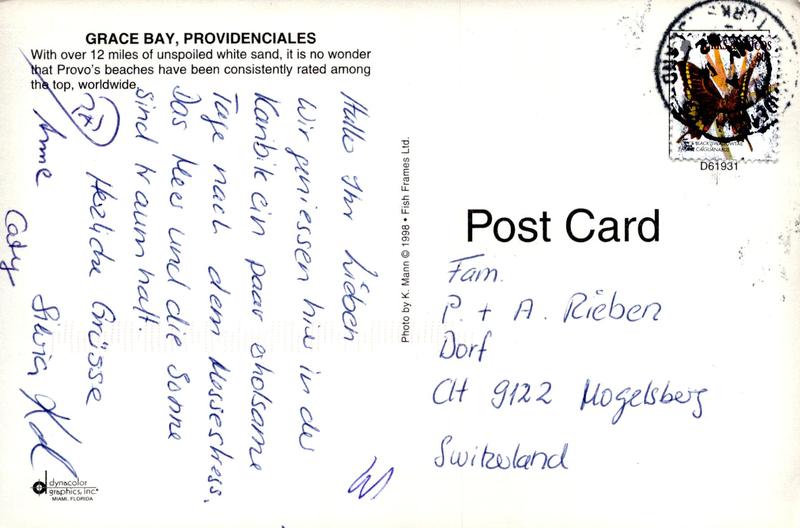 GRACE BAY, PROVIDENCIALES
With over 12 miles of unspoiled white sand, it is no wonder
that Provo's beaches have been consistently rated among
the top, worldwide.
Hallo Ihr Lieben
Wir geniessen hier in der
Karibik ein paar erholsame
Tage nach dem Messestress.
Das Meer und die Sonne
sind traumhaft.
Herzliche Grüsse
Anne
Caty
Silvia
Photo by K. Mann © 1998 • Fish Frames Ltd.
D61931
Post Card
Fam.
P. + A. Rieben
Dorf
CH 9122 Mogelsberg
Switzerland
dynacolor
graphics, inc.
MIAMI, FLORIDA